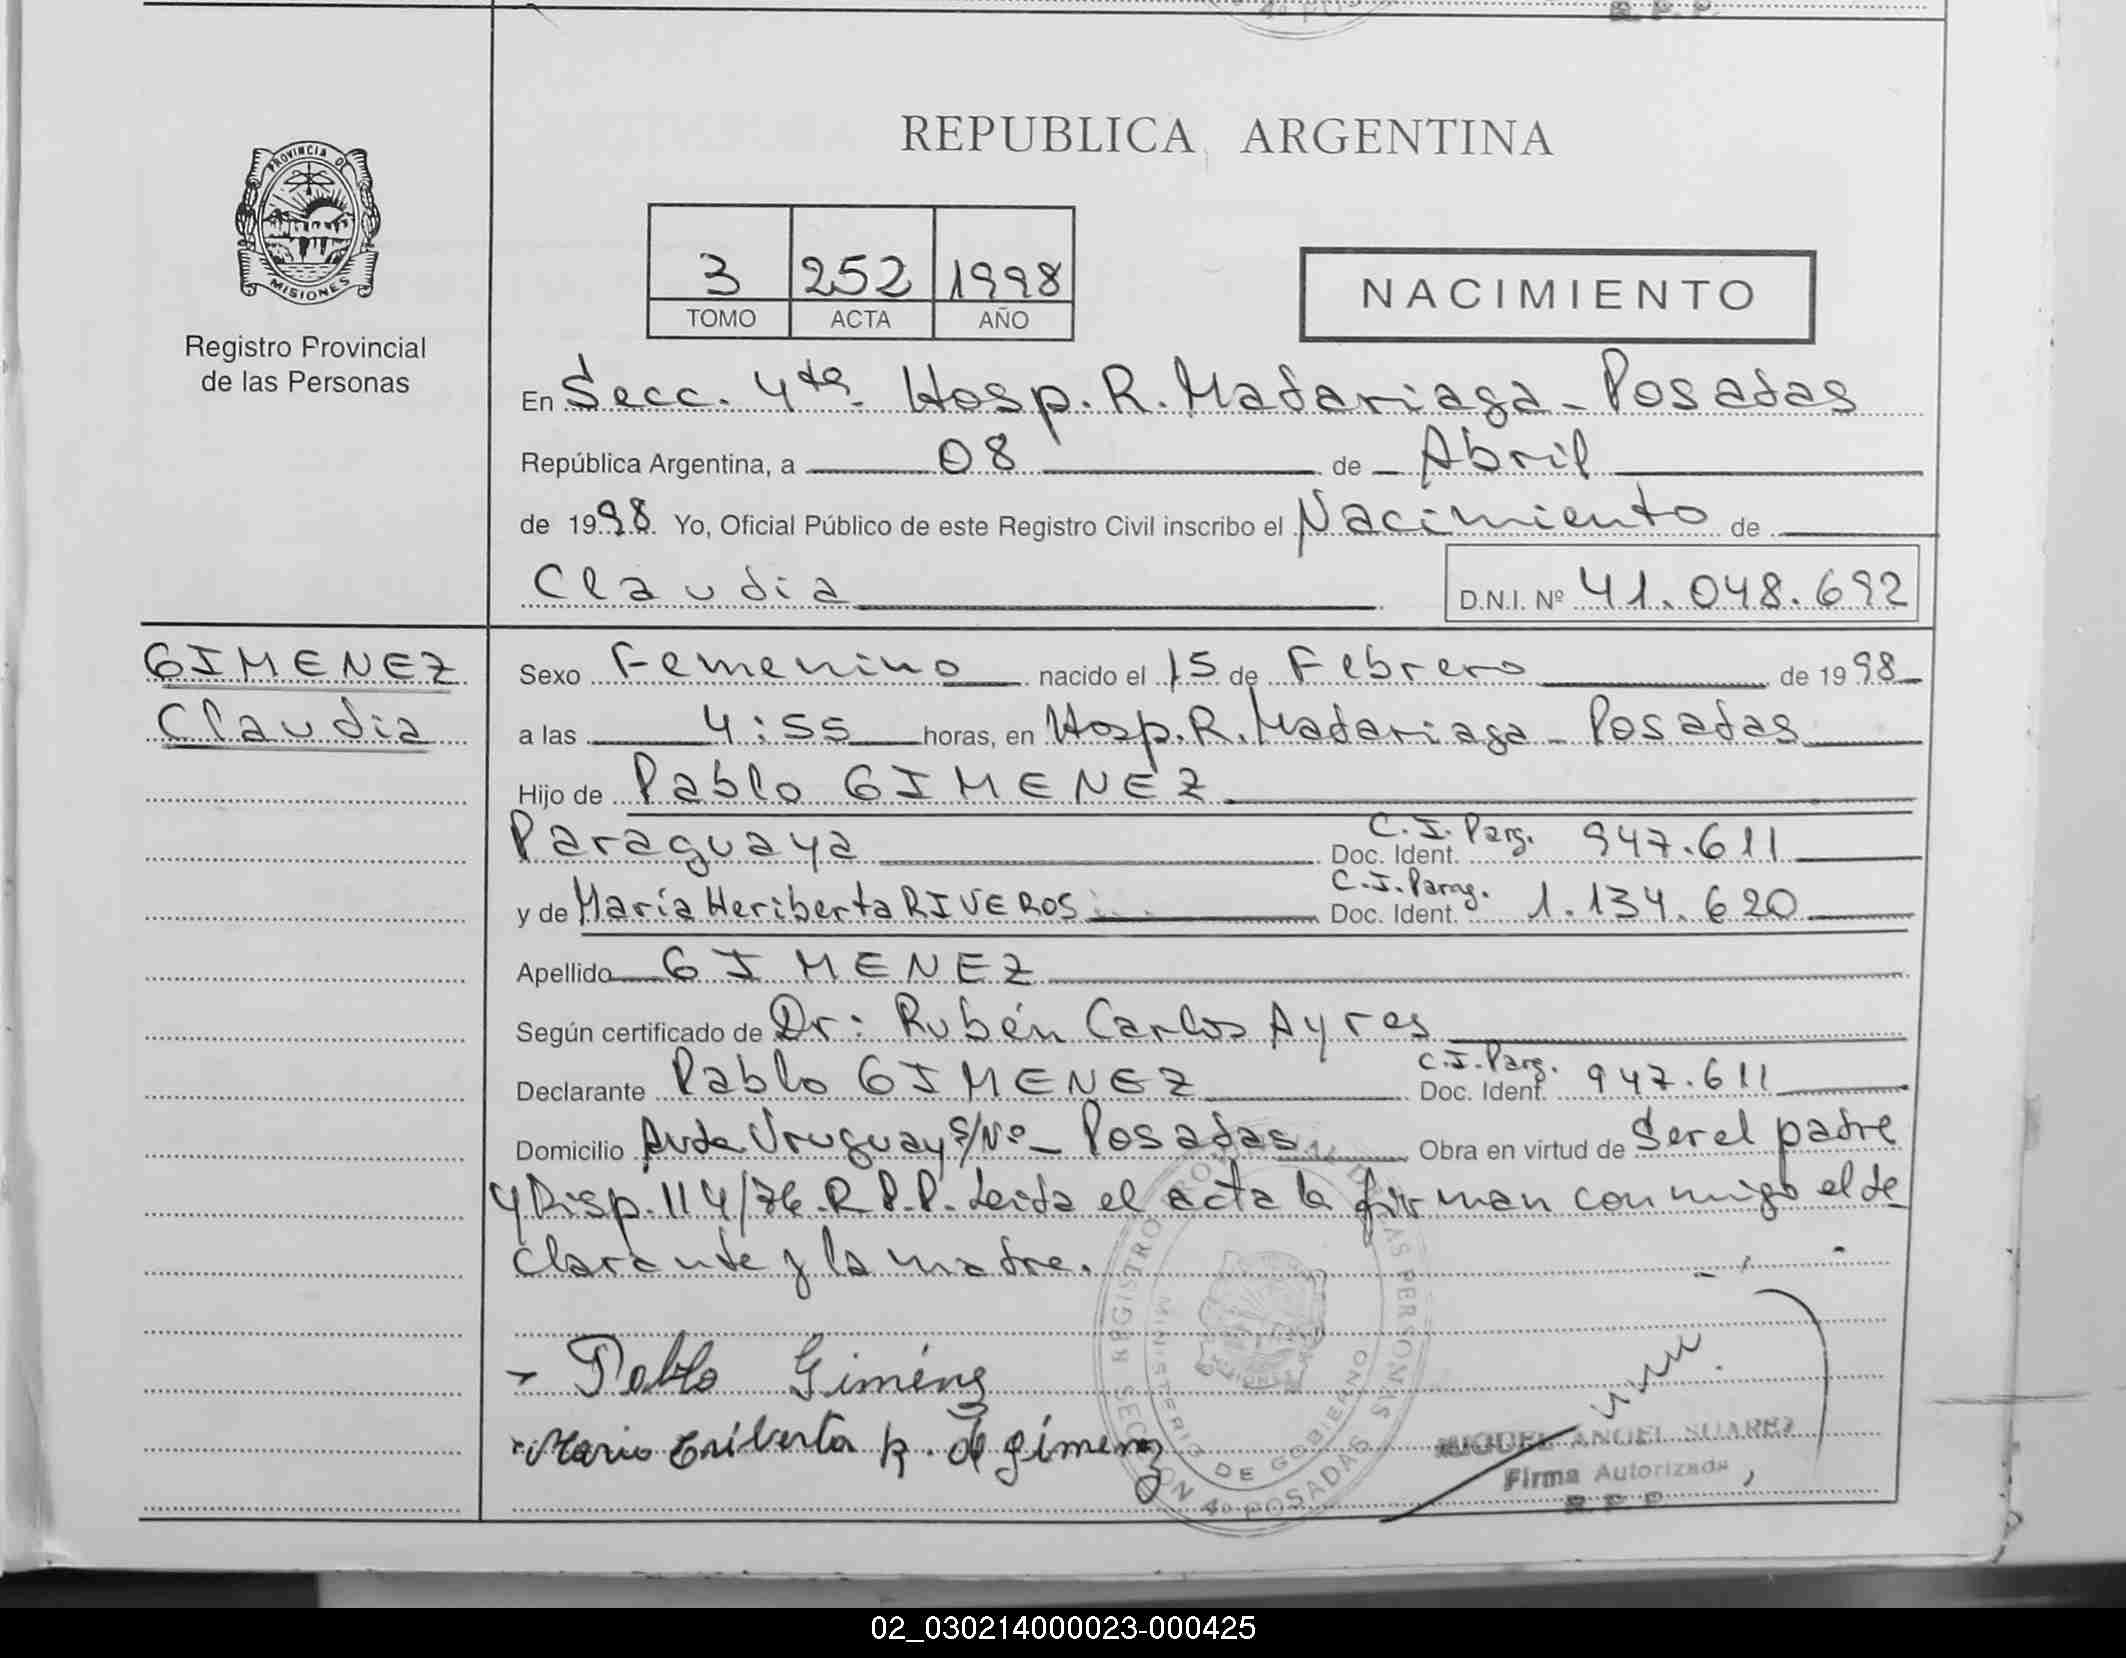 REPUBLICA ARGENTINA
PROVINCIA DE
MISIONES
Registro Provincial
de las Personas
3 252 1998
TOMO ACTA AÑO
NACIMIENTO
En Secc. 4ta. Hosp. R. Madariaga - Posadas
República Argentina, a 08 de Abril
de 1998. Yo, Oficial Público de este Registro Civil inscribo el Nacimiento de
Claudia D.N.I. Nº 41.048.692
GIMENEZ
Claudia
Sexo Femenino nacido el 15 de Febrero de 1998
a las 4:55 horas, en Hosp. R. Madariaga - Posadas
Hijo de Pablo GIMENEZ
Paraguaya Doc. Ident. C.I. Parg. 947.611
y de María Heriberta RIVEROS Doc. Ident. C.I. Parag. 1.134.620
Apellido GIMENEZ
Según certificado de Dr: Rubén Carlos Ayres
Declarante Pablo GIMENEZ Doc. Ident. C.I. Parg. 947.611
Domicilio Avda Uruguay S/Nº - Posadas Obra en virtud de Ser el padre
y Disp. 114/76. R.P.P. Leida el acta la firman conmigo el de
clarante y la madre.
- Pablo Giménz
Maria Eriberta R. de gimenz
REGISTRO PROVINCIAL DE LAS PERSONAS
MINISTERIO DE GOBIERNO
SECCION 4º POSADAS
MIGUEL ANGEL SUAREZ
Firma Autorizada
R. P. P.
4º POS
R. P. P.
02_030214000023-000425